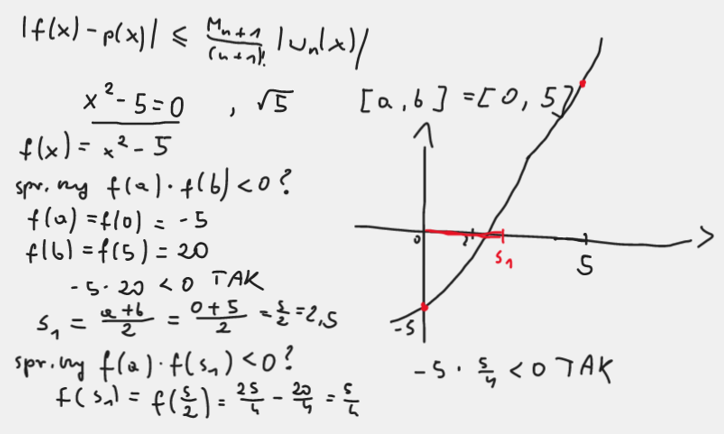 |f(x) - p(x)| ≤ M_{n+1}/(n+1)! |ω_n(x)|
x² - 5 = 0 , √5
[a, b] = [0, 5]
f(x) = x² - 5
spr. my f(a) · f(b) < 0 ?
f(a) = f(0) = -5
f(b) = f(5) = 20
-5 · 20 < 0 TAK
s₁ = (a+b)/2 = (0+5)/2 = 5/2 = 2,5
spr. my f(a) · f(s₁) < 0 ?
f(s₁) = f(5/2) = 25/4 - 20/4 = 5/4
0
s₁
5
-5
-5 · 5/4 < 0 TAK